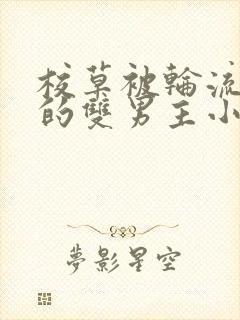 校草被輪流
的雙男主小
夢影星空